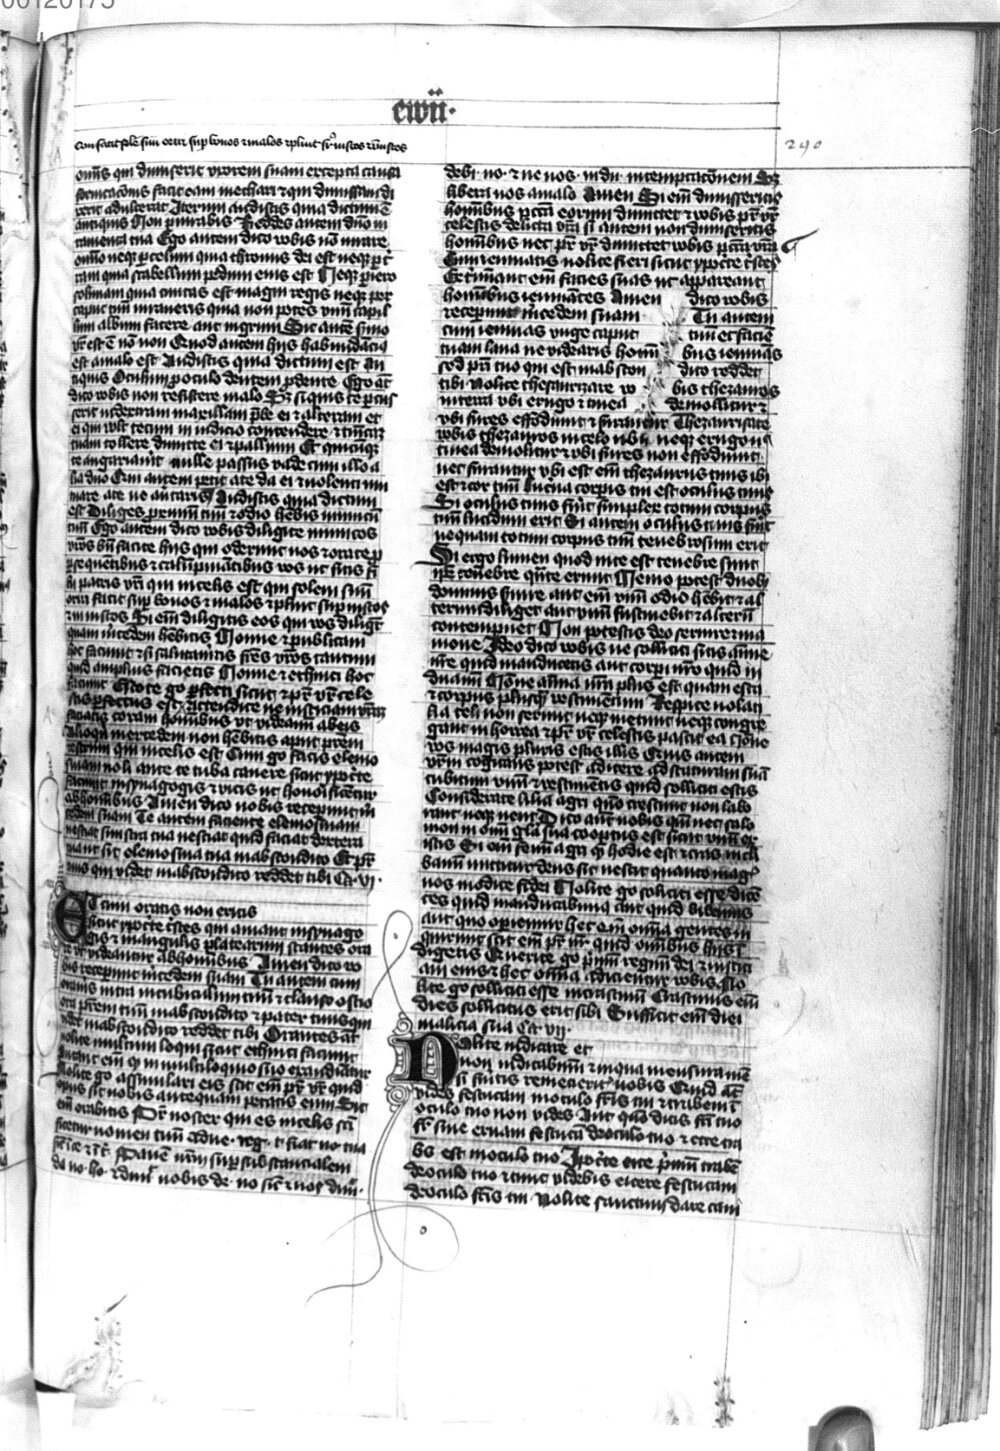 00120175
240
omnis qui dimiserit uxorem suam excepta causa
fornicacionis facit eam mechari et qui dimissam du
xerit adulterat Iterum audistis quia dictum est
antiquis Non periurabis Reddes autem dno iu
ramenta tua Ego autem dico vobis non iurare
omnino neque per celum quia thronus dei est neque per ter
ram quia scabellum pedum eius est Neque per iero
solimam quia civitas est magni regis neque per
caput tuum iuraveris quia non potes unum capil
lum album facere aut nigrum Sit autem sermo
est a malo est Audistis quia dictum est an
tiquis Oculum pro oculo dentem pro dente Ego autem
dico vobis non resistere malo Sed si quis te percus
serit in dexteram maxillam prebe ei et alteram et
ei qui vult tecum in iudicio contendere et tunicam
tuam tollere dimitte ei et pallium Et quicunque
te angariaverit mille passus vade cum illo a
lia duo Qui autem petit a te da ei et volenti mu
tuare a te ne avertaris Audistis quia dictum
est Diliges proximum tuum et odio habebis inimicum
tuum Ego autem dico vobis diligite inimicos
vestros benefacite hiis qui oderunt vos et orate pro
persequentibus et calumpniantibus vos ut sitis fi
lii patris vestri qui in celis est qui solem suum
oriri facit super bonos et malos et pluit super iustos
et iniustos Si enim diligitis eos qui vos diligunt
quam mercedem habebitis Nonne et publicani
hoc faciunt et si salutaveritis fratres vestros tantum
quid amplius facietis Nonne et ethnici hoc
faciunt Estote ergo perfecti sicut et pater vester cele
stis perfectus est Attendite ne iusticiam vestram
faciatis coram hominibus ut videamini ab eis
alioquin mercedem non habebitis aput patrem
vestrum qui in celis est Cum ergo facis elemo
sinam noli ante te tuba canere sicut ypocrite
faciunt in synagogis et vicis ut honorificentur
ab hominibus Amen dico vobis receperunt mer
cedem suam Te autem faciente elemosinam
nesciat sinistra tua quid faciat dextera
tua ut sit elemosina tua in abscondito Et pater
tuus qui videt in abscondito reddet tibi Ca vi
ET cum oratis non eritis
sicut ypocrite tristes qui amant in synago
gis et in angulis platearum stantes ora
re ut videantur ab hominibus Amen dico vo
bis receperunt mercedem suam Tu autem cum
oraveris intra in cubiculum tuum et clauso ostio
ora patrem tuum in abscondito et pater tuus qui
videt in abscondito reddet tibi Orantes autem
nolite multum loqui sicut ethnici faciunt
putant enim quia in multiloquio suo exaudiantur
Nolite ergo assimilari eis scit enim pater vester quid
opus sit vobis antequam petatis eum Sic
enim orabitis Pater noster qui es in celis sanctifi
cetur nomen tuum adve reg t fiat vo tua
sicut in ce et in t Panem nostrum supersubstancialem
da no ho et dimitte nobis de no sicut et nos dim
debi no et ne nos indu in temptacionem Sed
libera nos a malo Amen Si enim dimiseritis
hominibus peccata eorum dimittet et vobis pater vester
celestis delicta vestra si autem non dimiseritis
hominibus nec pater vester dimittet vobis peccata vestra
Cum ieiunatis nolite fieri sicut ypocrite tristes
Exterminant enim facies suas ut appareant
hominibus ieiunantes Amen dico vobis
receperunt mercedem suam Tu autem
cum ieiunas unge caput tuum et faciem
tuam lava ne videaris hominibus ieiunans
sed patri tuo qui est in abscondito reddet
tibi Nolite thesaurizare vobis thezauros
in terra ubi erugo et tinea demolitur et
ubi fures effodiunt et furantur Thezaurisate
vobis thezauros in celo ubi neque erugo neque
tinea demolitur et ubi fures non effodiunt
nec furantur ubi est enim thezaurus tuus ibi
est et cor tuum Lucerna corporis tui est oculus tuus
Si oculus tuus fuerit simplex totum corpus
tuum lucidum erit Si autem oculus tuus fuerit
nequam totum corpus tuum tenebrosum erit
Si ergo lumen quod in te est tenebre sunt
ipse tenebre quante erunt Nemo potest duobus
dominis servire aut enim unum odio habebit et al
terum diliget aut unum sustinebit et alterum
contempnet Non potestis deo servire et ma
mone Ideo dico vobis ne solliciti sitis anime
vestre quid manducetis aut corpori vestro quid in
duamini Nonne anima vestra plus est quam esca
et corpus plusquam vestimentum Respicite volati
lia celi non serunt neque metunt neque congre
gant in horrea et pater vester celestis pascit ea Nonne
vos magis pluris estis illis Quis autem
vestrum cogitans potest adicere ad staturam suam
cubitum unum et de vestimentis quid solliciti estis
Considerate lilia agri quomodo crescunt non labo
rant neque nent Dico autem vobis quoniam nec salo
mon in omni gloria sua coopertus est sicut unum ex
istis Si enim fenum agri quod hodie est et cras in cli
banum mittitur deus sic vestit quanto magis
vos modice fidei Nolite ergo solliciti esse dicen
tes quid manducabimus aut quid bibemus
aut quo operiemur hec enim omnia gentes in
quirunt scit enim pater vester quod omnibus hiis in
digetis Querite ergo primum regnum dei et iusticiam
eius et hec omnia adicientur vobis No
lite ergo solliciti esse in crastinum Crastinus enim
dies sollicitus erit sibi Sufficit enim diei
malicia sua Ca vii
Nolite iudicare et
non iudicabimini et in qua mensura men
si fueritis remecietur vobis Quid autem
vides festucam in oculo fratris tui et trabem in
oculo tuo non vides Aut quomodo dicis fratri tuo
frater sine eiciam festucam de oculo tuo et ecce tra
bs est in oculo tuo Ipocrite eice primum trabem
de oculo tuo et tunc videbis eicere festucam
de oculo fratris tui Nolite sanctum dare cani